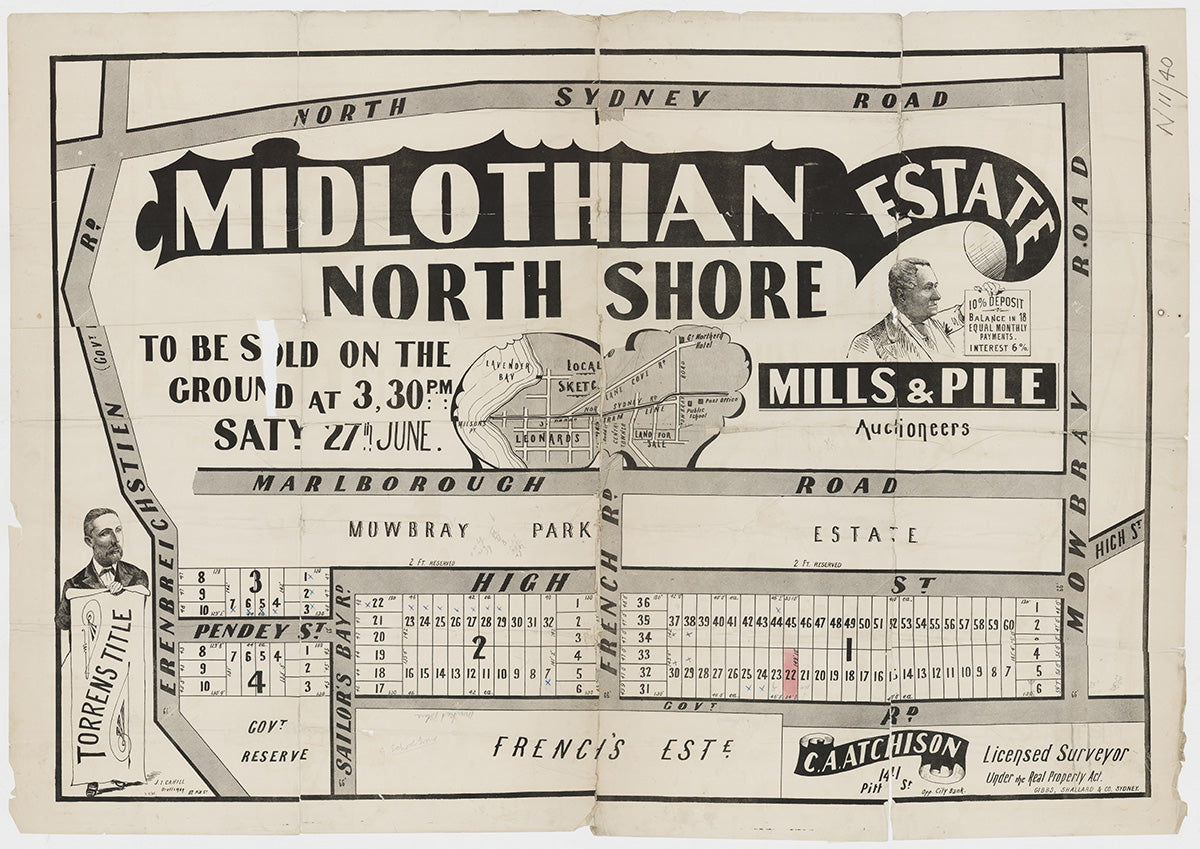 N11/40
NORTH SYDNEY ROAD
MIDLOTHIAN ESTATE
NORTH SHORE
10% DEPOSIT
BALANCE IN 18
EQUAL MONTHLY
PAYMENTS.
INTEREST 6%.
TO BE SOLD ON THE
GROUND AT 3,30 P.M.
SATY 27TH JUNE.
LAVENDER
BAY
LOCAL
SKETC
Gt Northern
Hotel
LANE COVE RD
SYDNEY RD
TRAM LINE
Post Office
Public
School
LEONARDS
LAND FOR
SALE
MILLS & PILE
Auctioneers
RD
(GOVT
ERENBREICHSTIEN
MOWBRAY ROAD
MARLBOROUGH ROAD
MOWBRAY PARK ESTATE
2 FT. RESERVED
2 FT. RESERVED
HIGH ST
HIGH ST
FRENCH RD
SAILORS BAY RD
8 3 1
9 2
10 7 6 5 4 3
PENDEY ST
8 7 6 5 4 1
9 2
10 4 3
22 1
21 23 24 25 26 27 28 29 30 31 32 2
20 3
19 2 4
18 16 15 14 13 12 11 10 9 8 7 5
17 6
36 1
35 37 38 39 40 41 42 43 44 45 46 47 48 49 50 51 52 53 54 55 56 57 58 59 60 2
34
33 1 4
32 30 29 28 27 26 25 24 23 22 21 20 19 18 17 16 15 14 13 12 11 10 9 8 7 5
31 6
GOVT RD
GOVT
RESERVE
FRENCH'S ESTE
TORRENS TITLE
J.T. CAHILL
C.A. ATCHISON
Pitt St
Opp. City Bank.
Licensed Surveyor
Under the Real Property Act.
GIBBS, SHALLARD & CO. SYDNEY.